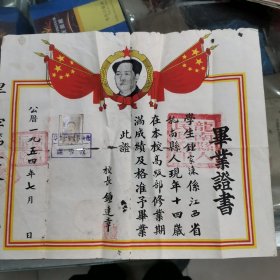 畢業證書
學生鍾家浚係江西省
縣人現年十四歲
在本校高級部修業期
滿成績及格准予畢業
此證
校長 鍾達章
公曆一九五四年七月 日